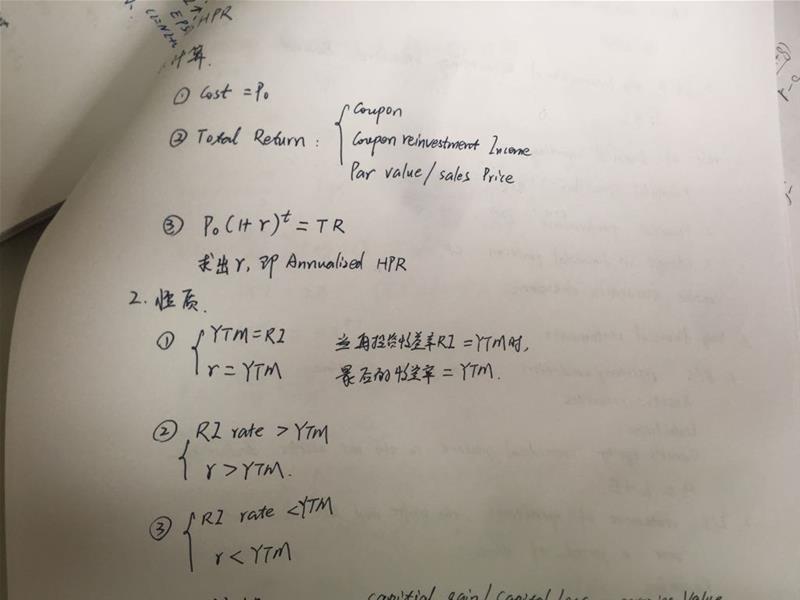 EPS
HPR
计算.
① Cost = P₀
② Total Return : { Coupon
Coupon reinvestment Income
Par value / sales Price
③ P₀(1+r)ᵗ = TR
求出r, 即 Annualized HPR
2. 性质.
① { YTM = RI 当再投资收益率RI = YTM时,
r = YTM 最后的收益率 = YTM.
② { RI rate > YTM
r > YTM.
③ { RI rate < YTM
r < YTM
capitial gain / capital loss
value